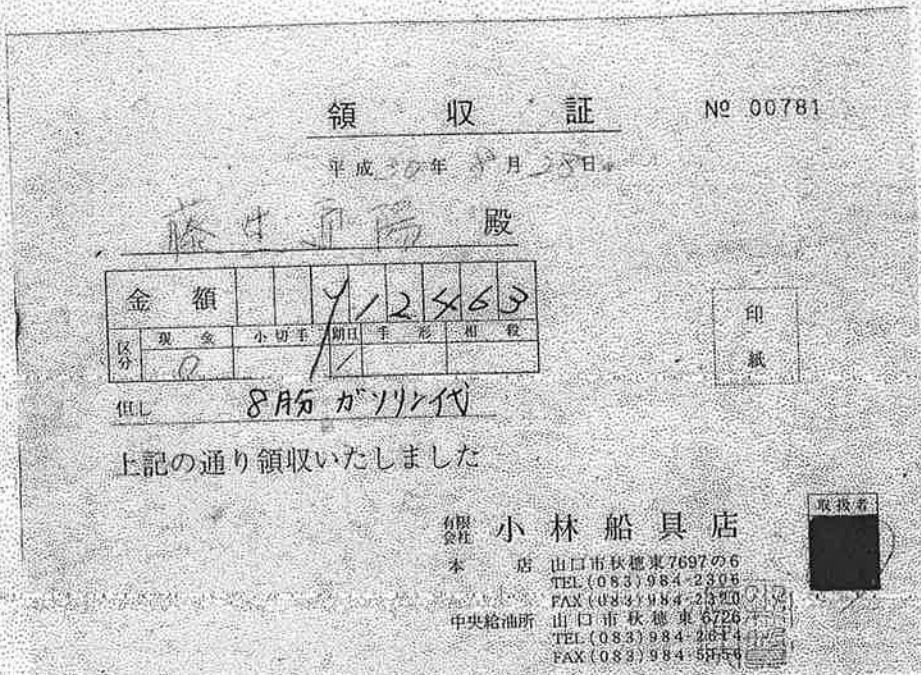 領収証 № 00781
平成30年8月28日
藤生 陽 殿
金額 ¥12463
区分 現金 小切手 期日 手形 相殺
印紙
但し 8月分 ガソリン代
上記の通り領収いたしました
有限会社 小林船具店
取扱者
本店 山口市秋穂東7697の6
TEL(083)984-2306
FAX(083)984-2320
中央給油所 山口市秋穂東6726
TEL(083)984-2614
FAX(083)984-